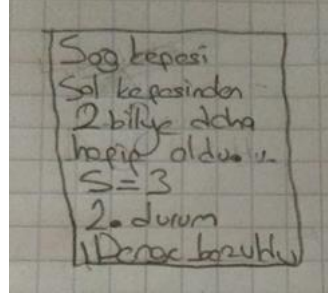 Sağ kepesi
Sol kepesinden
2 bilye daha
hapip oldu
S=3
2. durum
Denge bozuldu